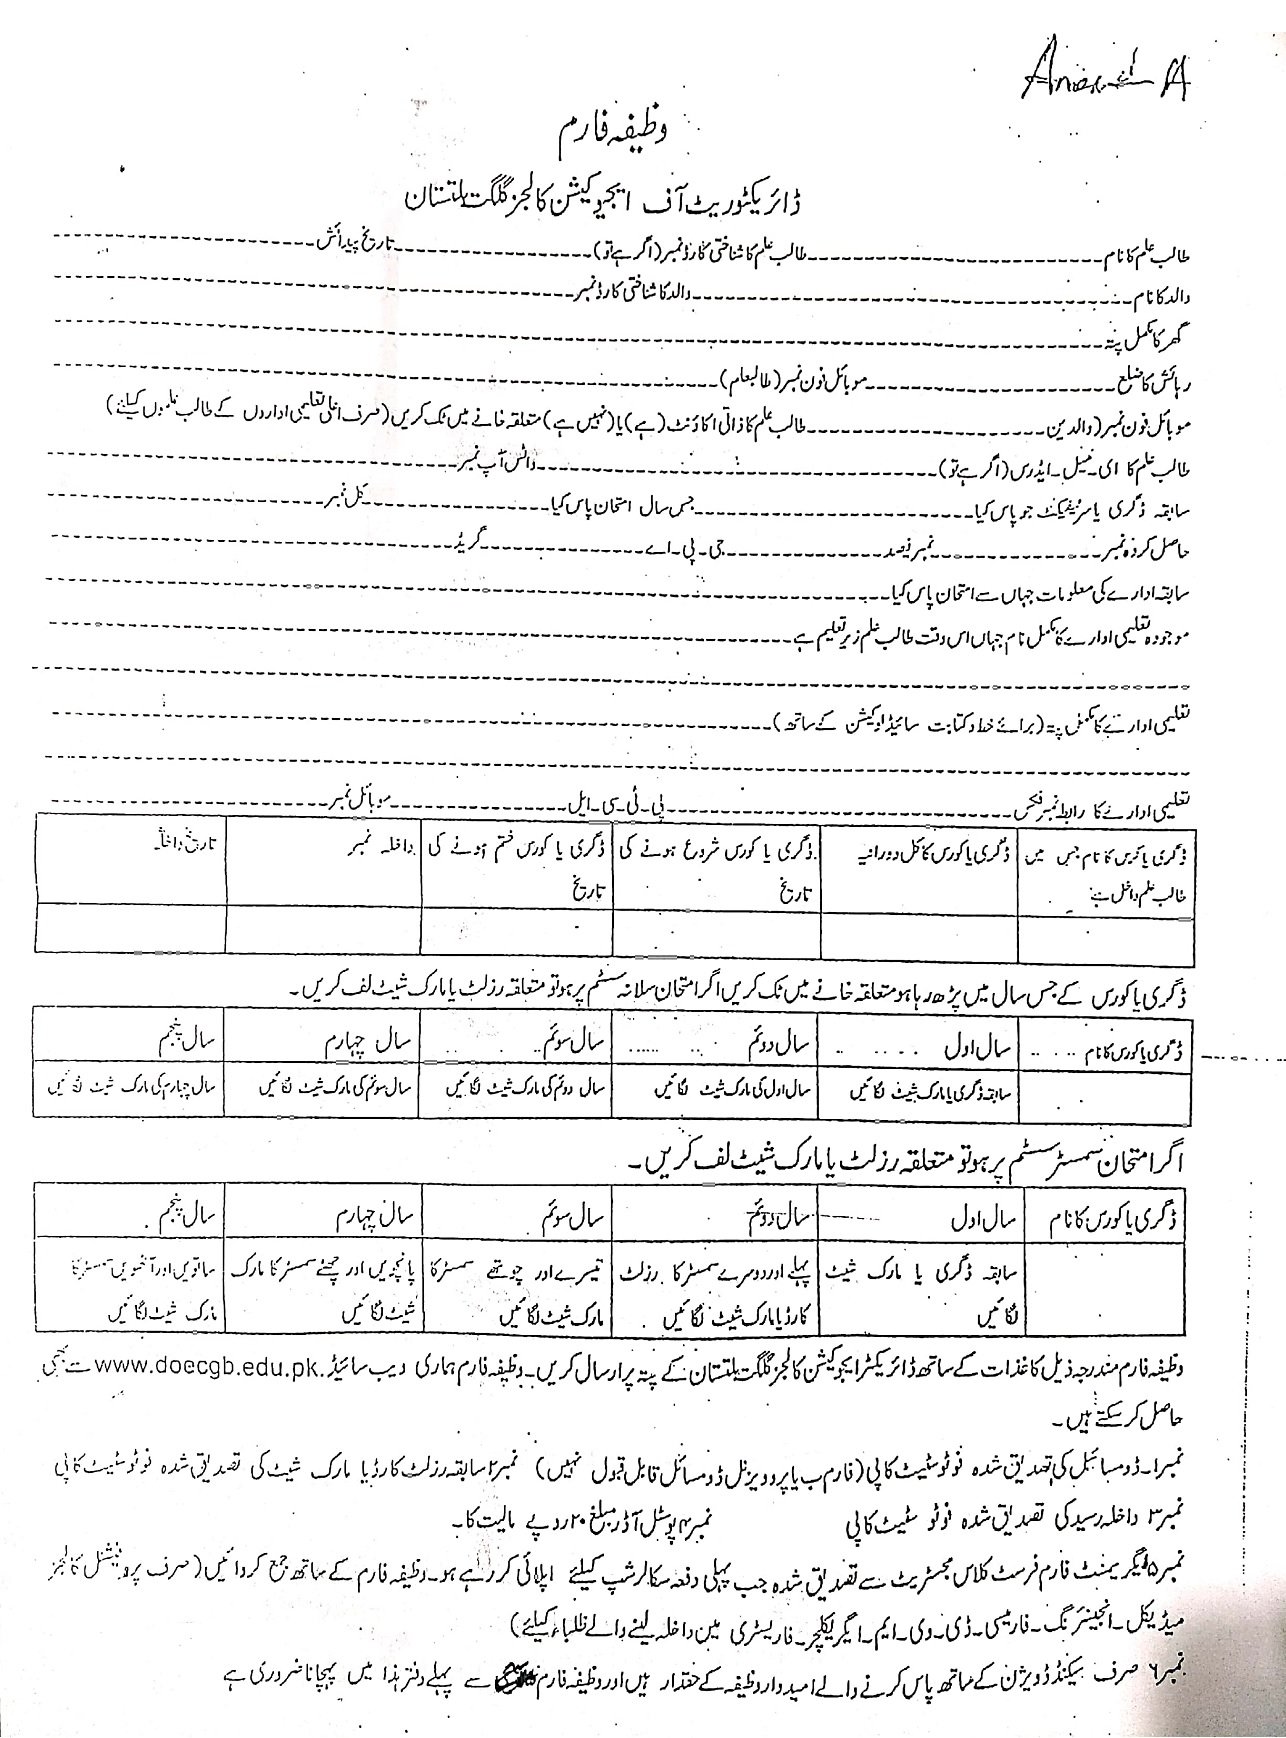 A
وظیفہ فارم
ڈائریکٹوریٹ آف ایجوکیشن کالجز گلگت بلتستان
طالب علم کا نام ---------- طالب علم کا شناختی کارڈ نمبر (اگر ہے تو) ---------- تاریخ پیدائش ----------
والد کا نام ---------- والد کا شناختی کارڈ نمبر ----------
گھر کا مکمل پتہ ----------
رہائش کا ضلع ---------- موبائل فون نمبر (طالبعلم) ----------
موبائل فون نمبر (والدین ---------- طالب علم کا ذاتی اکاؤنٹ (ہے) یا (نہیں ہے) متعلقہ خانے میں ٹک کریں (صرف اعلیٰ تعلیمی اداروں کے طالب علموں کیلئے)
طالب علم کا ای۔میل۔ایڈرس (اگر ہے تو) ---------- واٹس آپ نمبر ----------
سابقہ ڈگری یا سرٹیفیکیٹ جو پاس کیا ---------- جس سال امتحان پاس کیا ---------- کل نمبر ----------
حاصل کردہ نمبر ---------- نمبر فیصد ---------- جی۔پی۔اے ---------- گریڈ ----------
سابقہ ادارے کی معلومات جہاں سے امتحان پاس کیا ----------
موجودہ تعلیمی ادارے کا مکمل نام جہاں اس وقت طالب علم زیر تعلیم ہے ----------
تعلیمی ادارے کا مکمل پتہ (برائے خط و کتابت سائیڈ لوکیشن کے ساتھ) ----------
تعلیمی ادارے کا رابطہ نمبر فیکس ---------- پی۔ٹی۔سی۔ایل ---------- موبائل نمبر ----------
ڈگری یا کورس کا نام جس میں طالب علم داخل ہے: | ڈگری یا کورس کا کل دورانیہ | ڈگری یا کورس شروع ہونے کی تاریخ | ڈگری یا کورس ختم ہونے کی تاریخ | داخلہ نمبر | تاریخ داخلہ
ڈگری یا کورس کے جس سال میں پڑھ رہا ہو متعلقہ خانے میں ٹک کریں اگر امتحان سلانہ سسٹم پر ہو تو متعلقہ رزلٹ یا مارک شیٹ لف کریں۔
ڈگری یا کورس کا نام | سال اول | سال دوئم | سال سوئم | سال چہارم | سال پنجم
سابقہ ڈگری یا مارک شیٹ لگائیں | سال اول کی مارک شیٹ لگائیں | سال دوئم کی مارک شیٹ لگائیں | سال سوئم کی مارک شیٹ لگائیں | سال چہارم کی مارک شیٹ لگائیں
اگر امتحان سمسٹر سسٹم پر ہو تو متعلقہ رزلٹ یا مارک شیٹ لف کریں۔
ڈگری یا کورس کا نام | سال اول | سال دوئم | سال سوئم | سال چہارم | سال پنجم
سابقہ ڈگری یا مارک شیٹ لگائیں | پہلے اور دوسرے سمسٹر کا رزلٹ کارڈ یا مارک شیٹ لگائیں | تیسرے اور چوتھے سمسٹر کا مارک شیٹ لگائیں | پانچویں اور چھٹے سمسٹر کا مارک شیٹ لگائیں | ساتویں اور آٹھویں سمسٹر کا مارک شیٹ لگائیں
وظیفہ فارم مندرجہ ذیل کاغذات کے ساتھ ڈائریکٹر ایجوکیشن کالجز گلگت بلتستان کے پتہ پر ارسال کریں۔ وظیفہ فارم ہماری ویب سائیڈ www.doecgb.edu.pk. سے بھی
حاصل کر سکتے ہیں۔
نمبر۱۔ ڈومسائیل کی تصدیق شدہ فوٹو سٹیٹ کاپی (فارم ب یا پروویژنل ڈومسائل قابل قبول نہیں) نمبر۲ سابقہ رزلٹ کارڈ یا مارک شیٹ کی تصدیق شدہ فوٹو سٹیٹ کاپی
نمبر۳ داخلہ رسید کی تصدیق شدہ فوٹو سٹیٹ کاپی نمبر۴ پوسٹل آڈر مبلغ ۲۰ روپے مالیت کا۔
نمبر۵ ایگریمنٹ فارم فرسٹ کلاس مجسٹریٹ سے تصدیق شدہ جب پہلی دفعہ سکالرشپ کیلئے اپلائی کر رہے ہو۔ وظیفہ فارم کے ساتھ جمع کروائیں (صرف پروفیشنل کالجز
میڈیکل۔انجینئرنگ۔فارمیسی۔ڈی۔وی۔ایم۔ایگریکلچر۔فاریسٹری میں داخلہ لینے والے طلباء کیلئے)
نمبر۶ صرف سیکنڈ ڈویژن کے ساتھ پاس کرنے والے امیدوار وظیفہ کے حقدار ہیں اور وظیفہ فارم سے پہلے دفتر ہذا میں پہچانا ضروری ہے